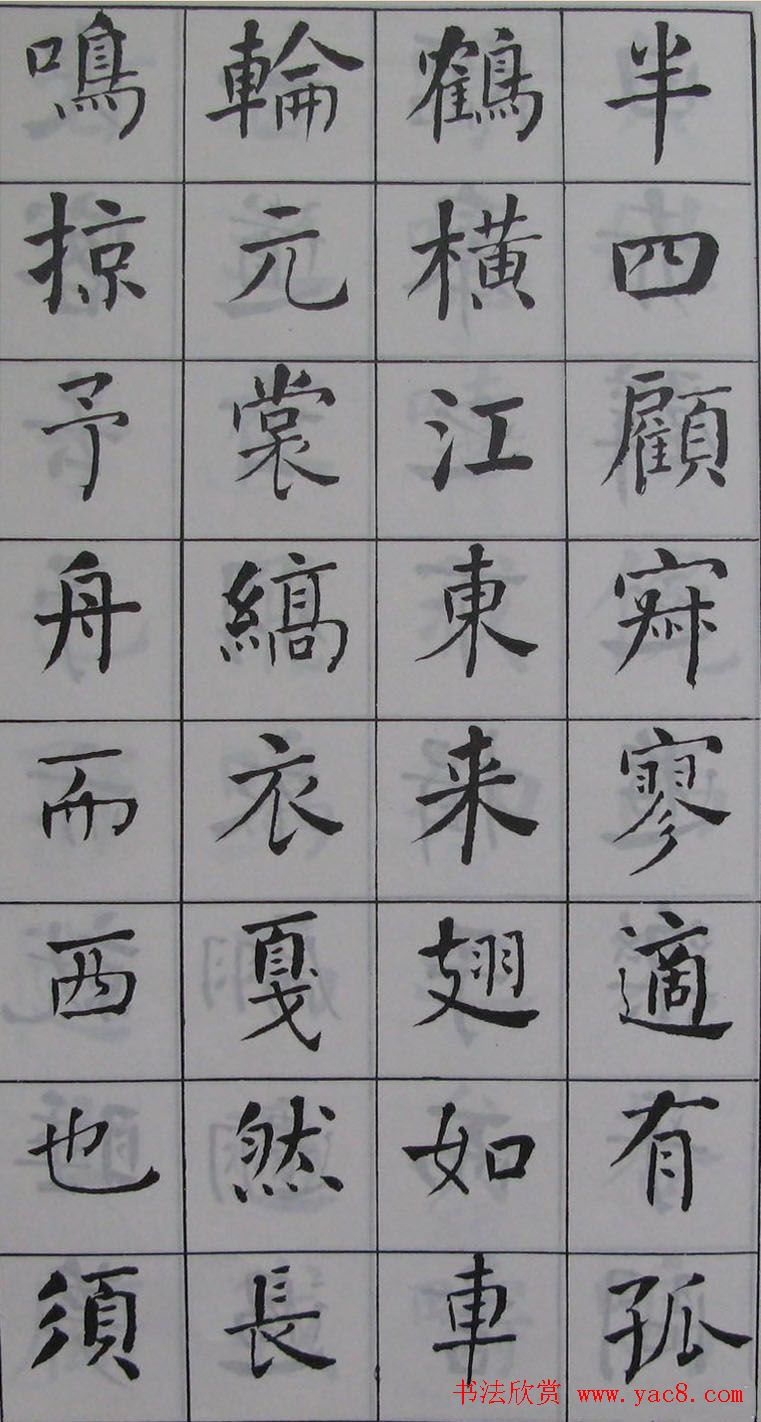 半四顧寂寥適有孤
鶴橫江東来翅如車
輪元裳縞衣戛然長
鳴掠予舟而西也須
书法欣赏 www.yac8.com